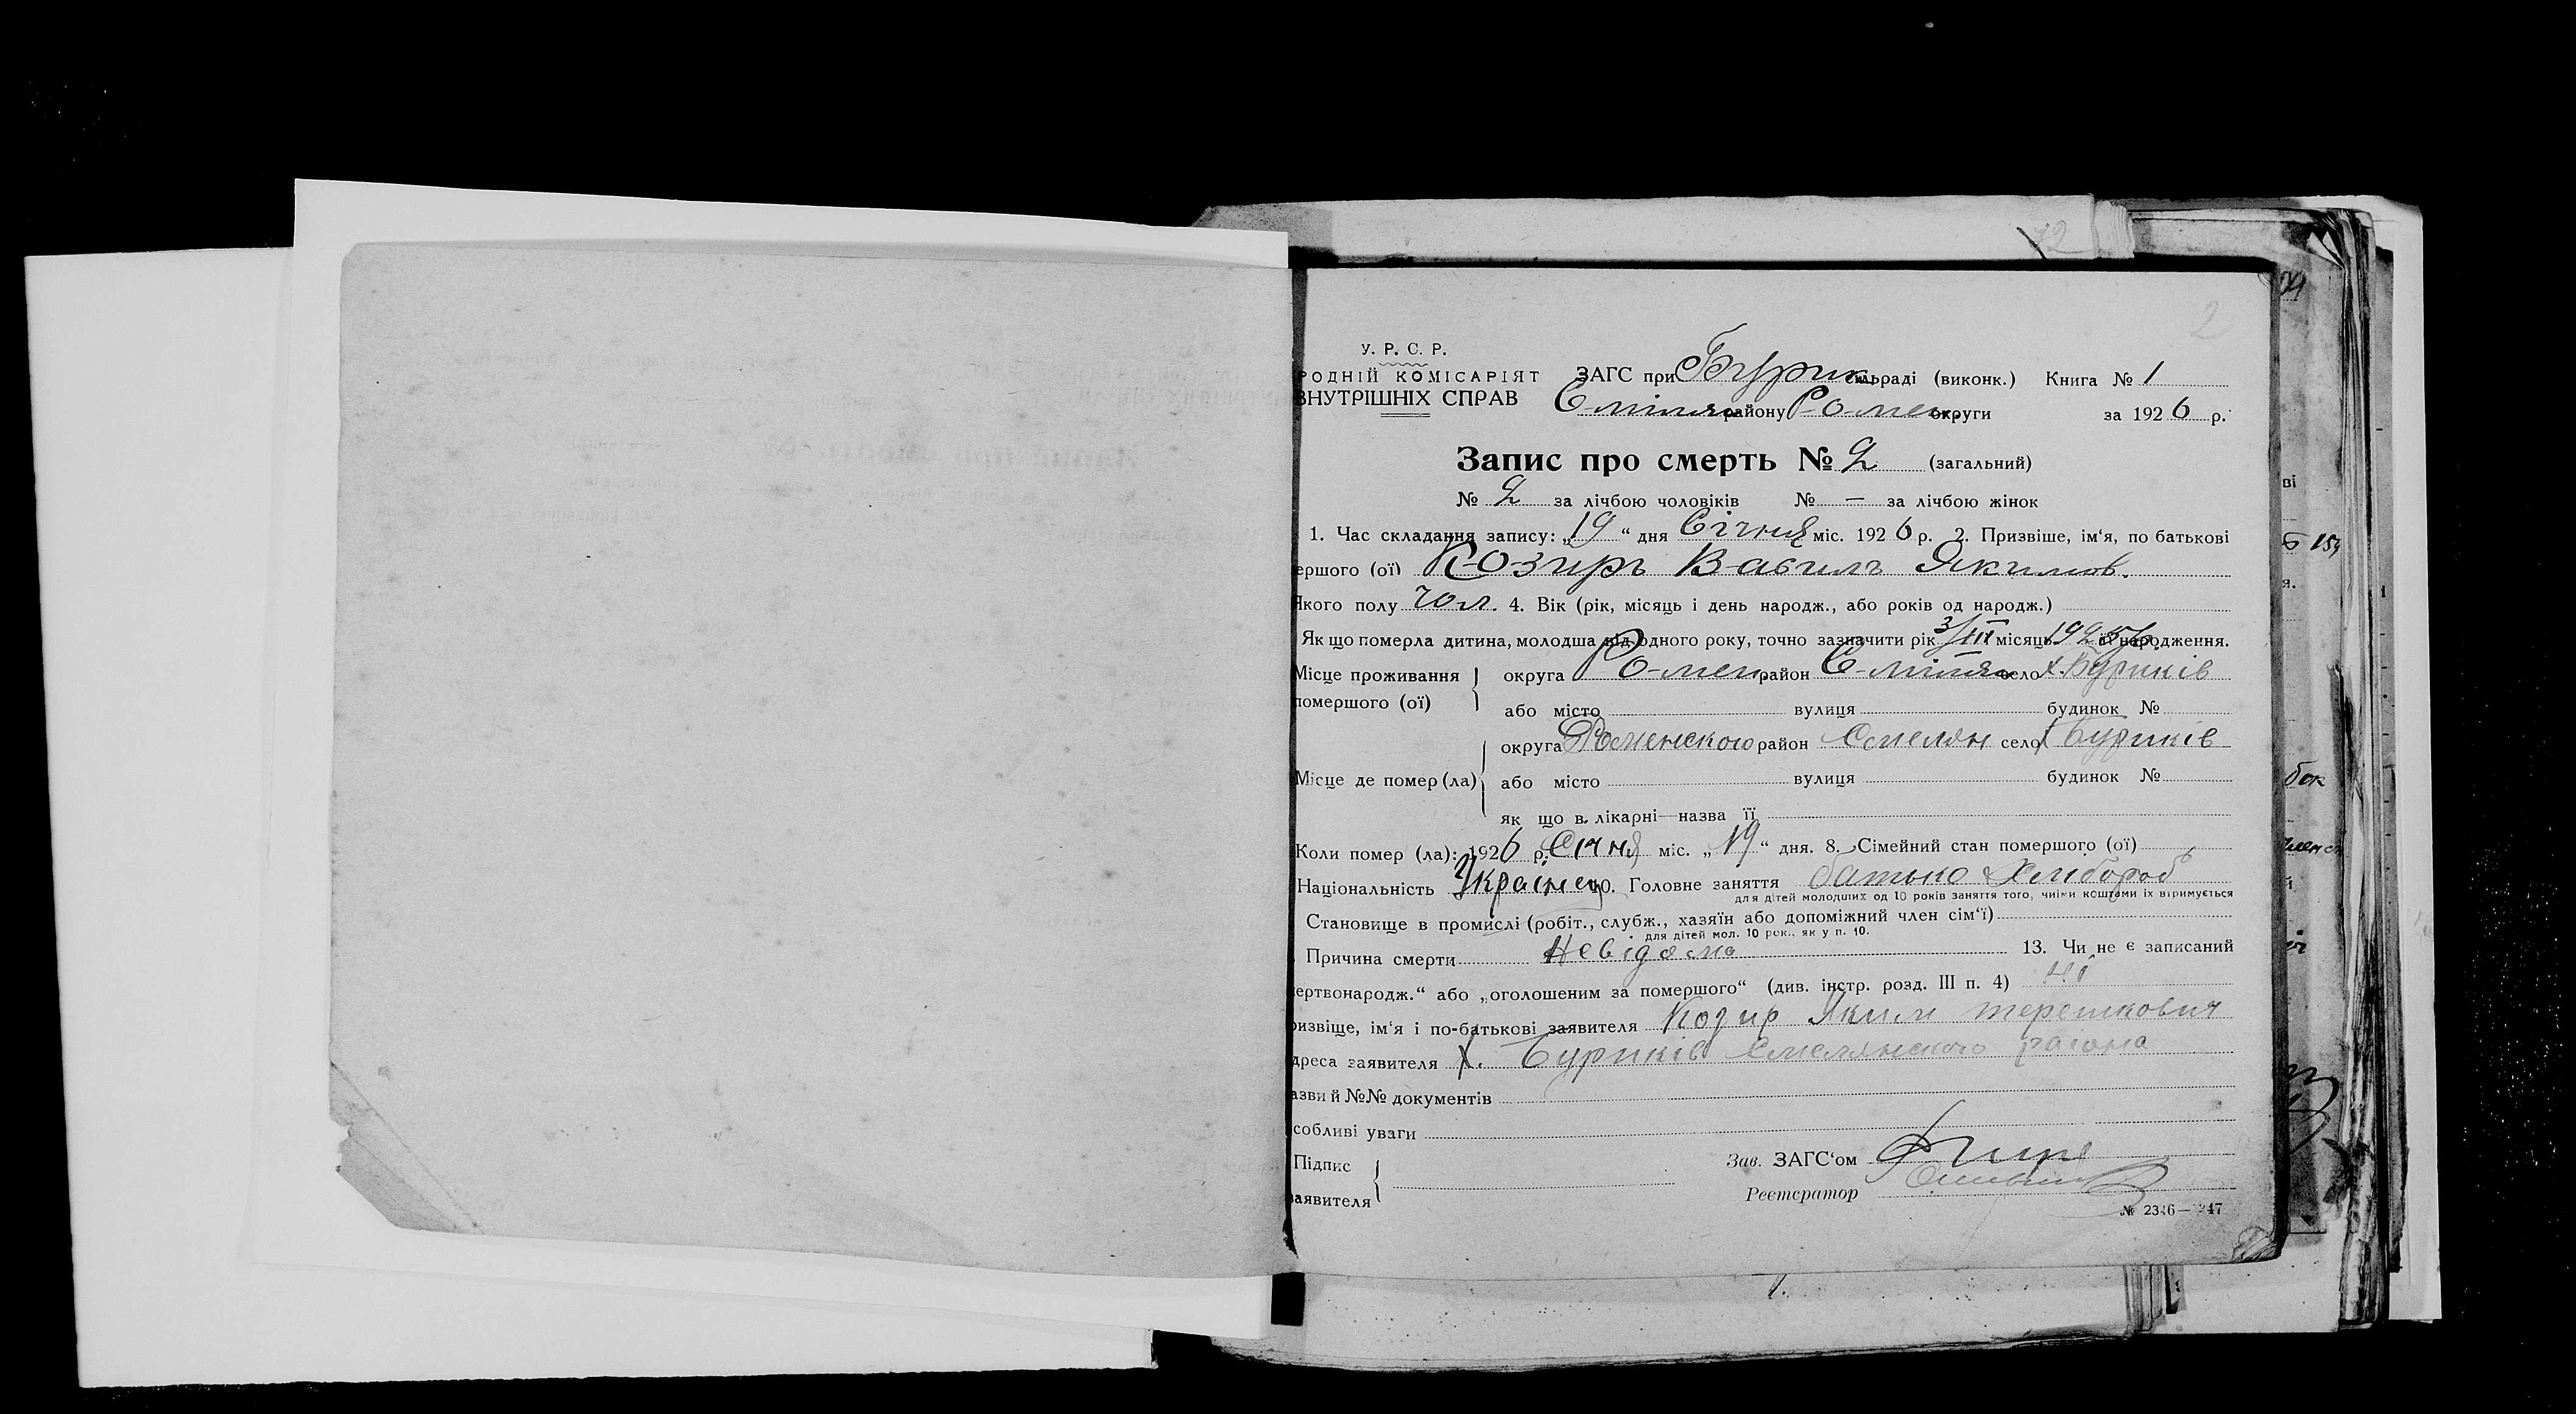 2
У. Р. С. Р.
РОДНІЙ КОМІСАРІЯТ ЗАГС при Бурик. сільраді (виконк.) Книга № 1
ВНУТРІШНІХ СПРАВ Смілян району Ромен округи за 1926 р.
Запис про смерть № 2 (загальний)
№ 2 за лічбою чоловіків № — за лічбою жінок
1. Час складання запису: „19“ дня Січня міс. 1926 р. 2. Призвіше, ім‘я, по батькові
ершого (ої) Козиръ Василъ Якимов.
Якого полу чол. 4. Вік (рік, місяць і день народж., або років од народж.)
Як що померла дитина, молодша від одного року, точно зазначити рік 3/III місяць 1925 її народження.
Місце проживання помершого (ої) округа Ромен. район Смілян село х. Буриків
або місто вулиця будинок №
Місце де помер (ла) округа Роменского район Смелян село х Буриків
або місто вулиця будинок №
як що в лікарні—назва її
Коли помер (ла): 1926 р. Січня міс. „19“ дня. 8. Сімейний стан помершого (ої)
Національність Українец 10. Головне заняття батько Хлібороб
для дітей молодших од 10 років заняття того, чиїми коштами їх втримується
Становище в промислі (робіт., служб., хазяїн або допоміжний член сім‘ї)
для дітей мол. 10 рок., як у п. 10.
Причина смерти Невідома 13. Чи не є записаний
ертвонародж.“ або „оголошеним за помершого“ (див. інстр. розд. III п. 4) Ні
ризвіще, ім‘я і по-батькові заявителя Козир Яким терешкович
дреса заявителя х. Буриків Смелянского раіона
азви й №№ документів
собливі уваги
Підпис заявителя
Зав. ЗАГС‘ом
Реєтсратор